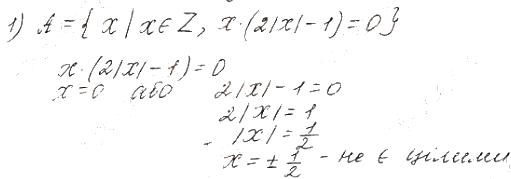 1) A = { x | x ∈ Z, x·(2|x|-1)=0}
x·(2|x|-1)=0
x=0 або 2|x|-1=0
2|x|=1
|x|=1/2
x=±1/2 - не є цілими